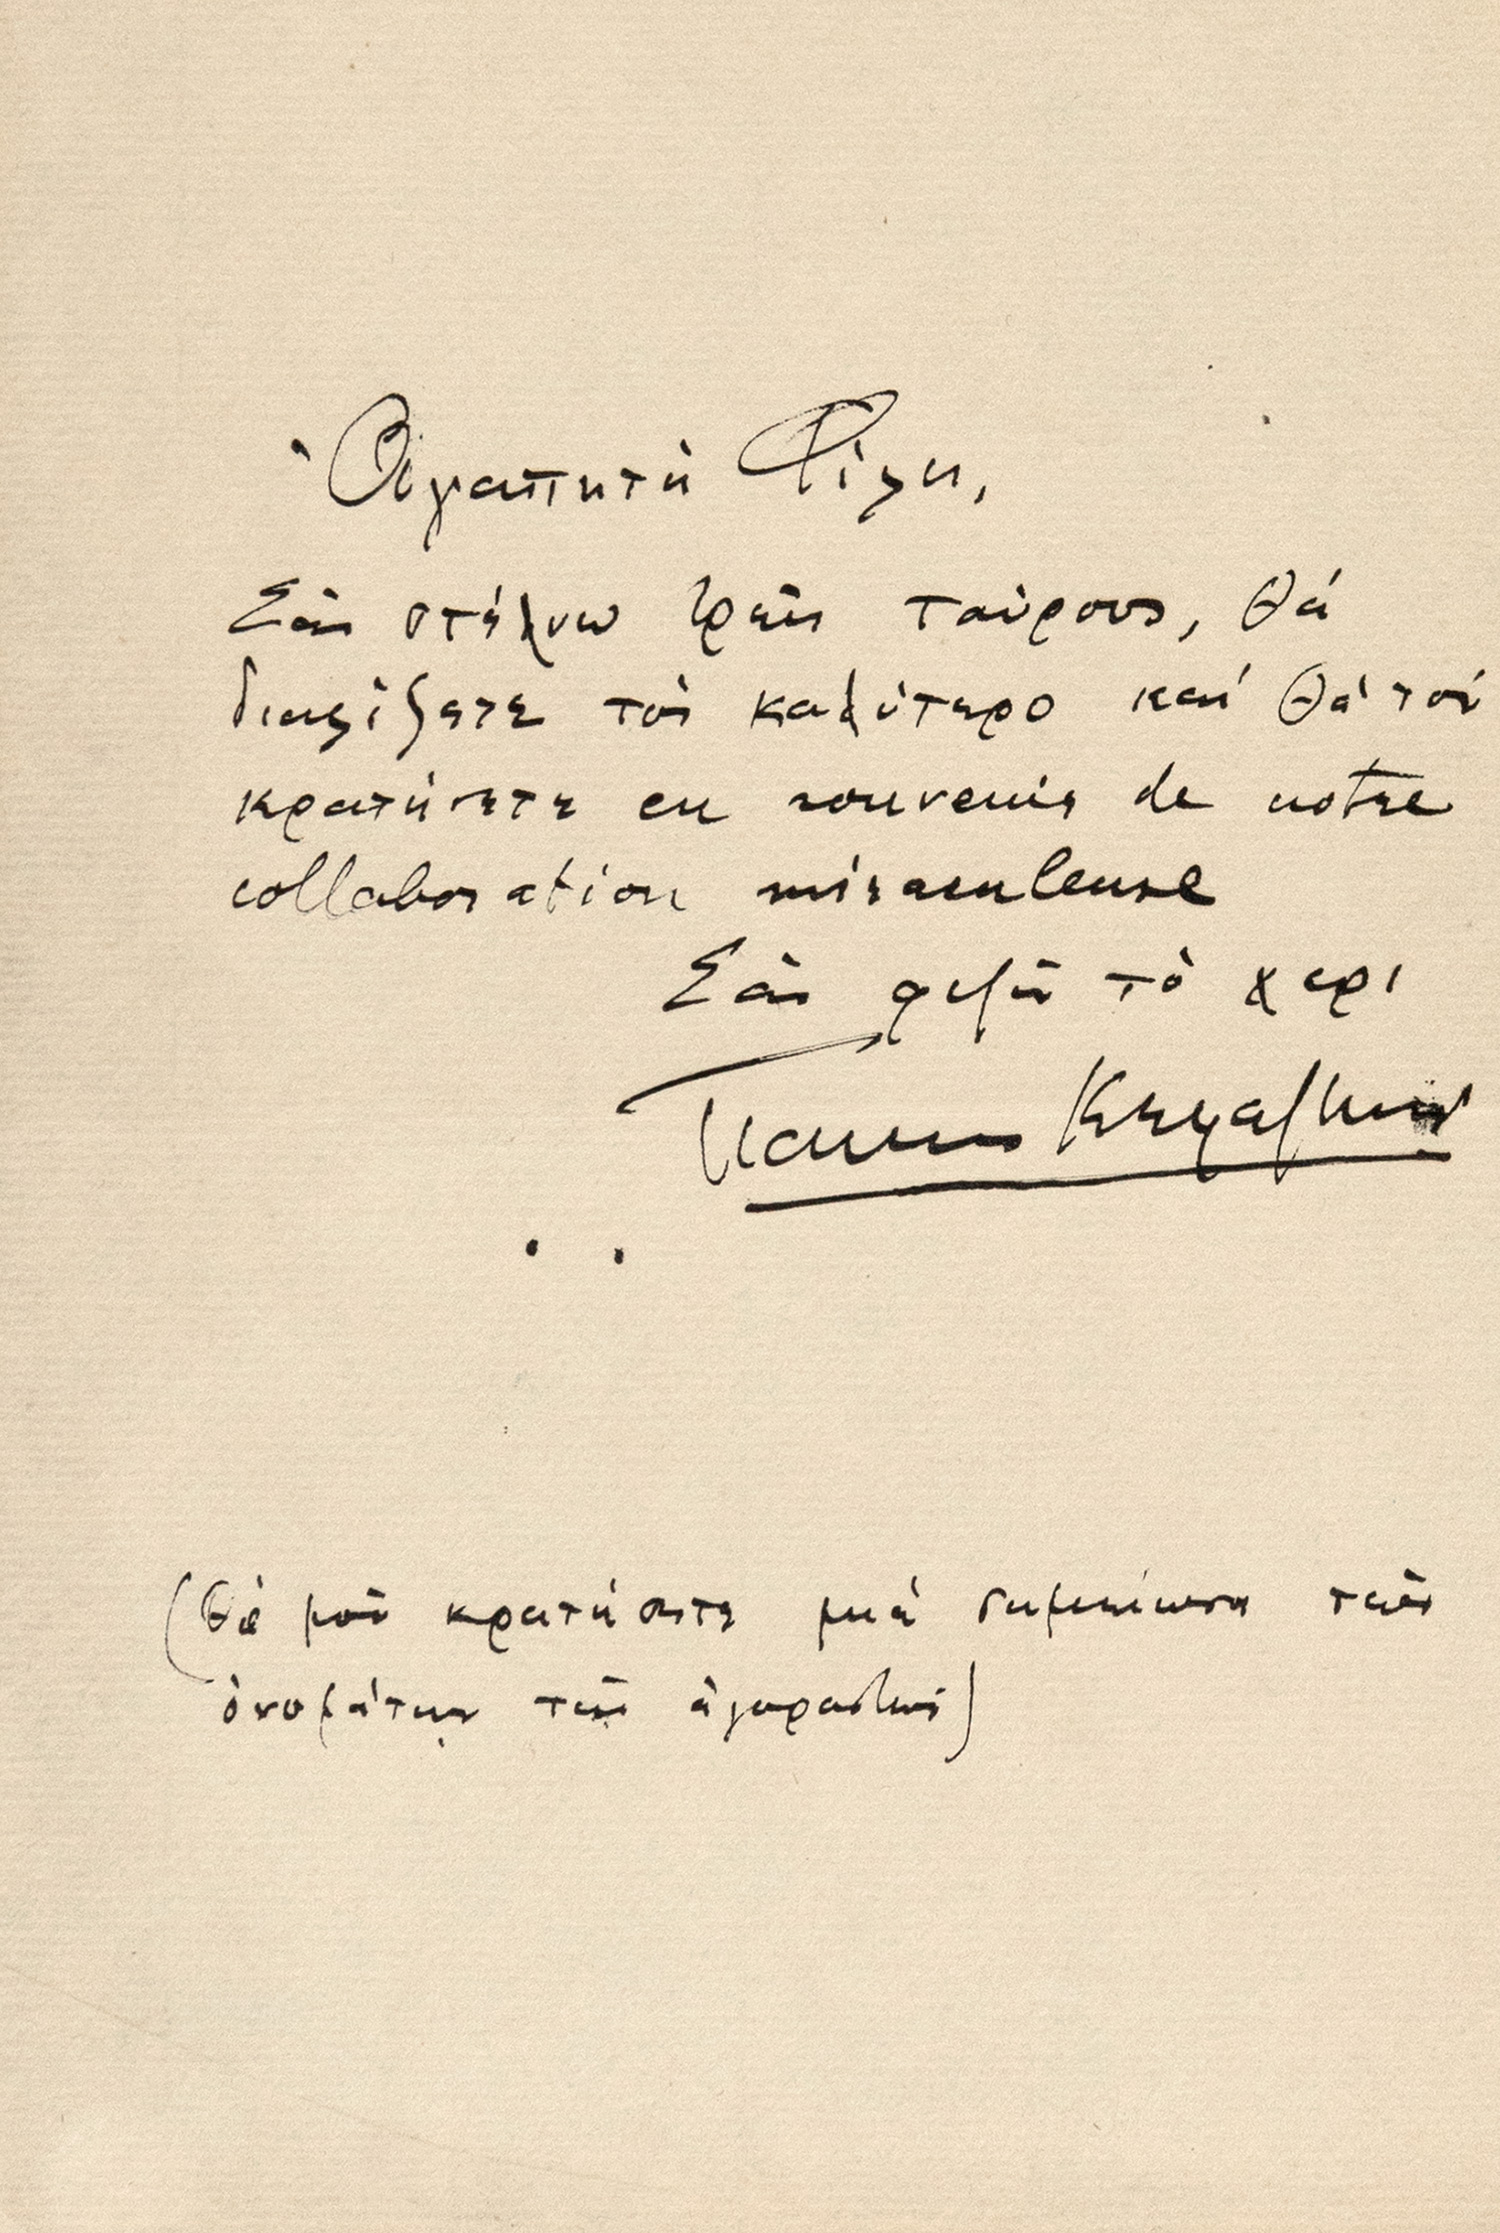 Ἀγαπητὴ Φίλη,
Σᾶς στέλνω τρεῖς ταύρους, θά
διαλέξετε τὸν καλύτερο καί θὰ τόν
κρατήσετε en souvenir de notre
collaboration miraculeuse
Σᾶς φιλῶ τὸ χερι
(Θὰ μοῦ κρατήσετε μιά σημείωση τῶν
ὀνομάτων τῶν ἀγοραστῶν)